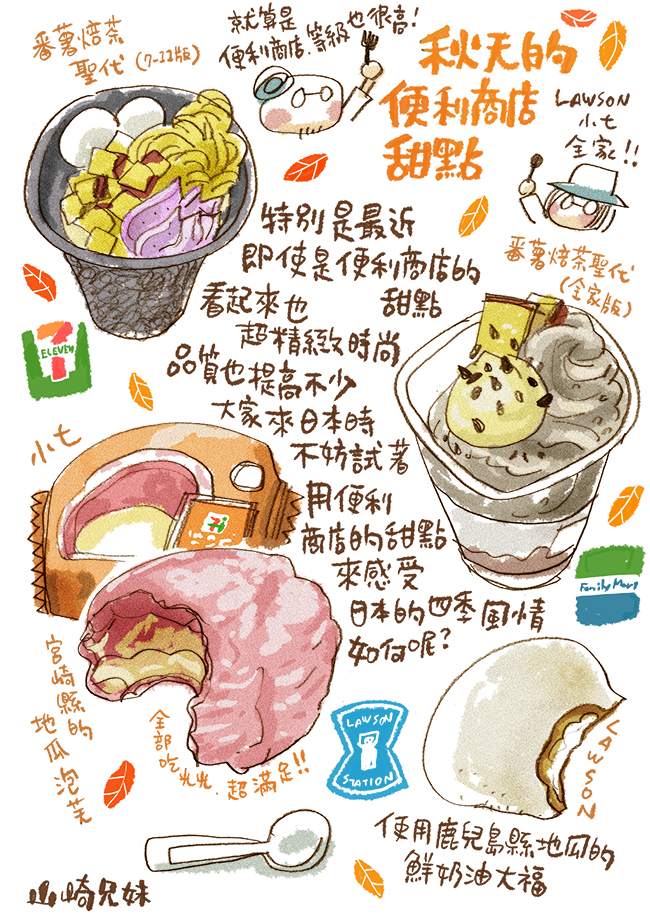 秋天的
便利商店
甜點
就算是
便利商店, 等級也很高!
番薯焙茶
聖代 (7-11版)
LAWSON
小七
全家!!
特別是最近
即使是便利商店的
甜點
看起來也
超精緻時尚
品質也提高不少
大家來日本時
不妨試著
用便利
商店的甜點
來感受
日本的四季風情
如何呢?
番薯焙茶聖代
(全家版)
7
ELEVEN
小七
7
FamilyMart
宮崎縣的
地瓜泡芙
全部
吃光光, 超滿足!!
LAWSON
STATION
LAWSON
使用鹿兒島縣地瓜的
鮮奶油大福
山崎兄妹